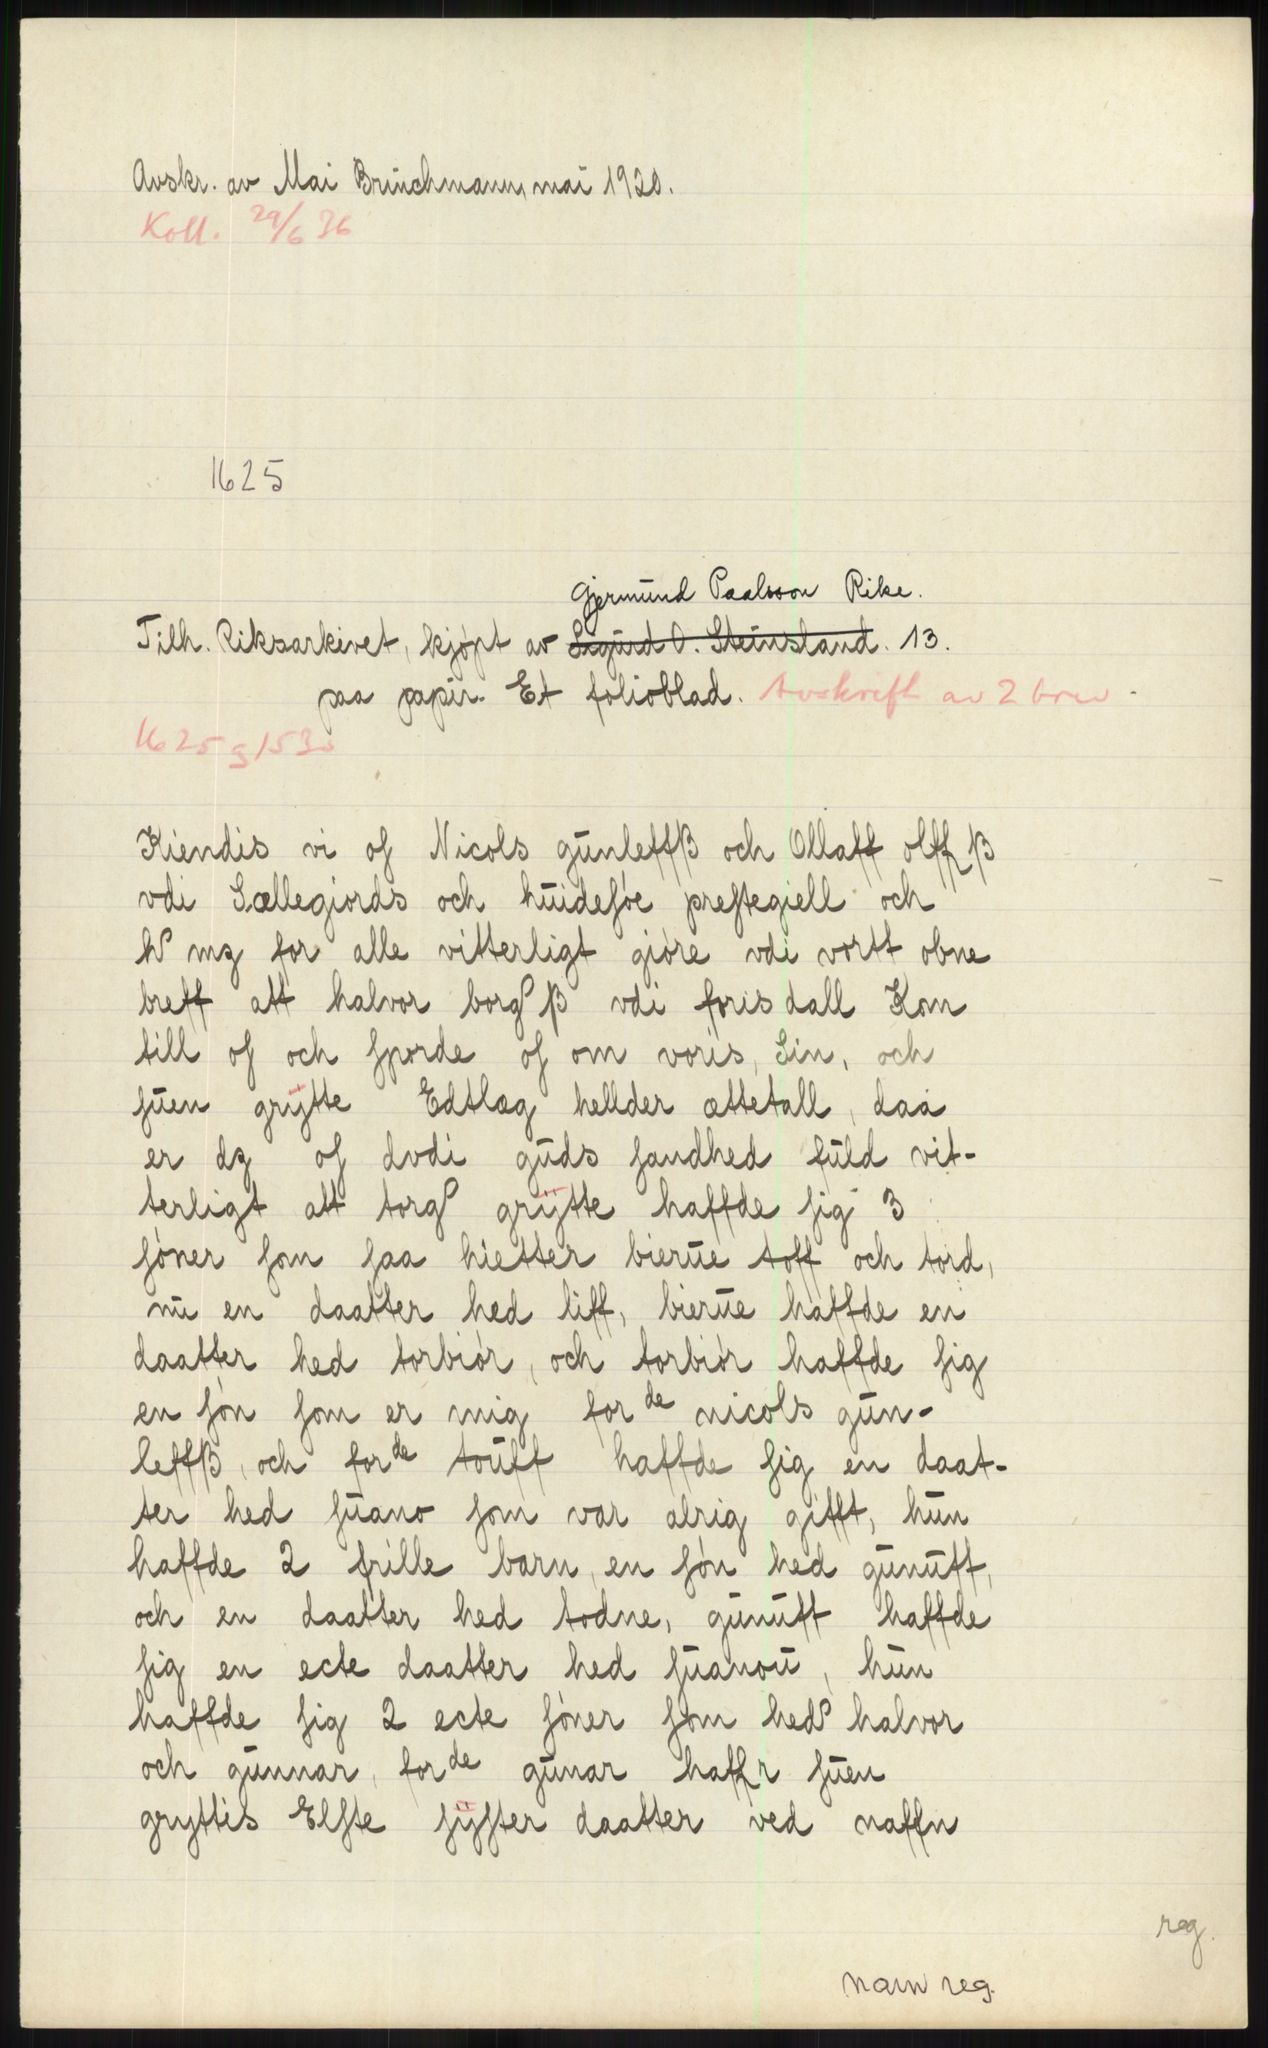 Avskr. av Mai Bruchmann, mai 1920.
Koll. 29/6 36
1625
Gjermund Paalsson Rike.
Tilh. Riksarkivet, kjøpt av Sigurd O. Steinsland. 13.
paa papir. Et folioblad. Avskrift av 2 brev
1625 g 153
Kiendis vi oſ Nicols gunleffß och Ollaff olff ß
vdi Sællegiords och huideſöe preſtegiell och
mz for alle vitterligt giöre vdi vortt obne
breff att halvor ß vdi foris dall Kom
till oſ och ſporde oſ om voris, Sin, och
ſuen grÿtte Edtlæg hellder ættetall, daa
er dz oſ dvdi guds ſandhed fuld vit-
terligt att grÿtte haffde ſig 3
ſöner ſom ſaa hietter bierue toff och tord,
nu en daatter hed liff, bierue haffde en
daatter hed torbiör, och torbiör haffde ſig
en ſön ſom er mig forde nicols gun-
leffß, och forde touff haffde ſig en daat-
ter hed ſuano ſom var alrig gifft, hun
haffde 2 frille barn, en ſön hed gunuff,
och en daatter hed todne, gunuff haffde
ſig en ecte daatter hed ſuanou, hun
haffde ſig 2 ecte ſöner ſom hed halvor
och gunnar, forde gunar haffr ſuen
gryttis Elſte ſÿſter daatter ved naffn
reg.
navn reg.